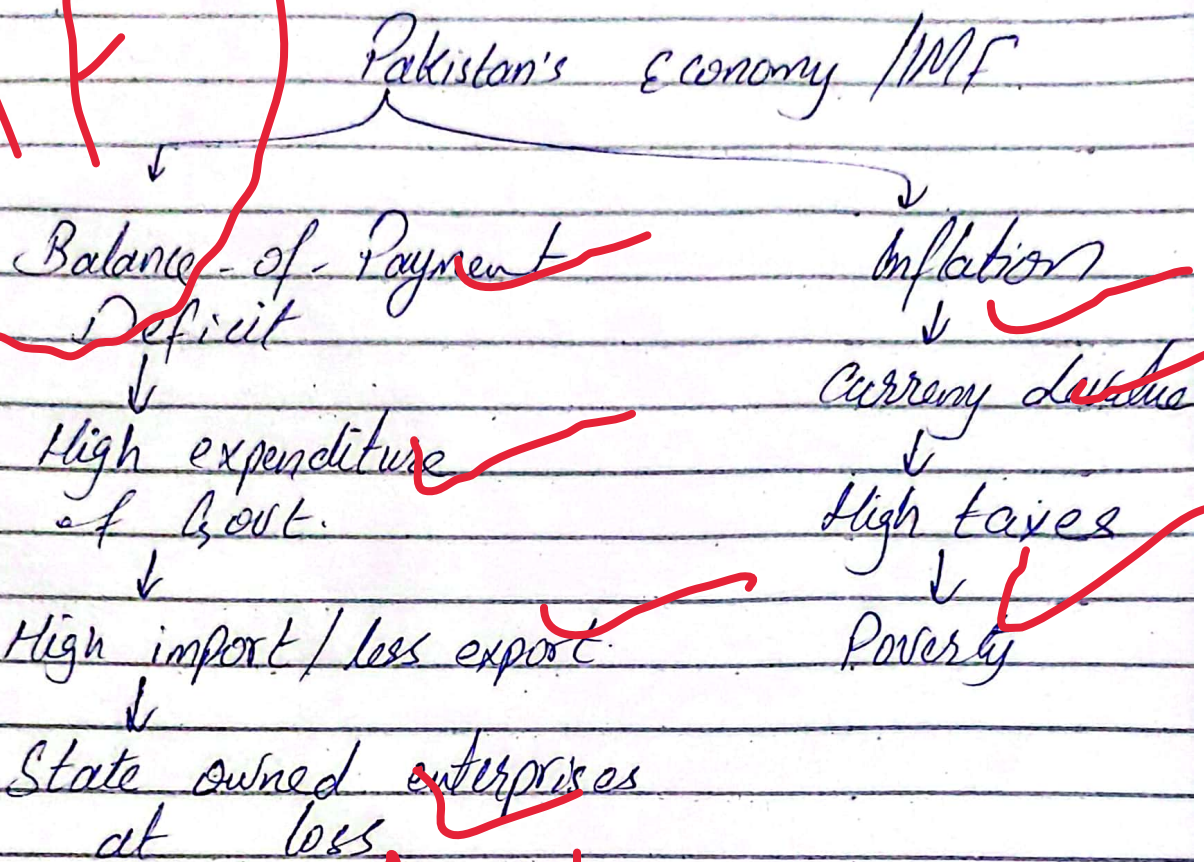 Pakistan's Economy /IMF
Balance-of-Payment
Deficit
High expenditure
of Govt.
High import/less export.
State owned enterprises
at loss
Inflation
Curreny devalue
High taxes
Poverty